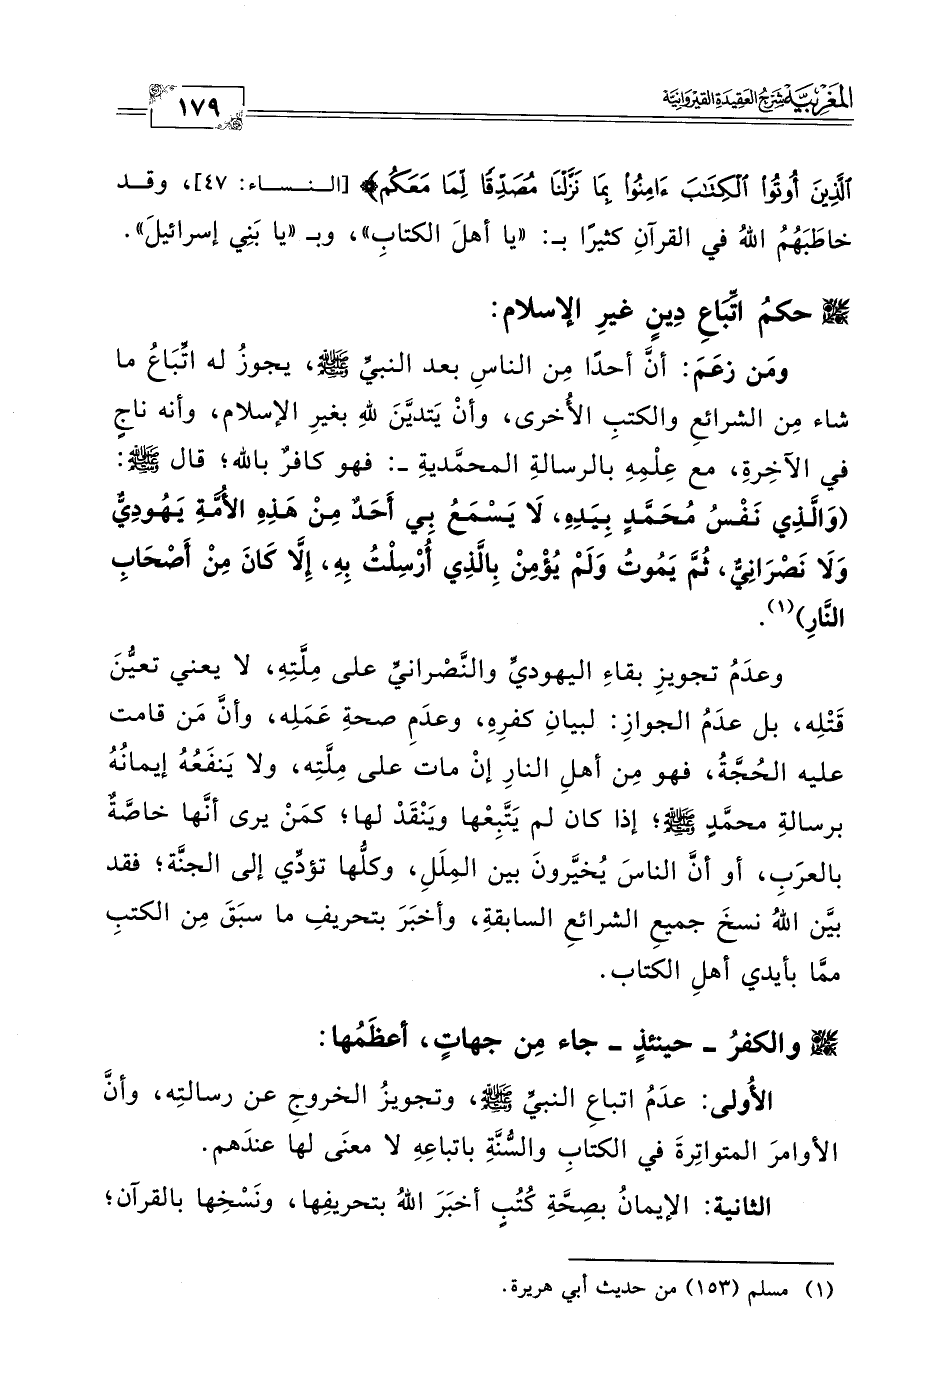 المغربية شرح العقيدة القيروانية
١٧٩
ٱلَّذِينَ أُوتُوا۟ ٱلْكِتَٰبَ ءَامِنُوا۟ بِمَا نَزَّلْنَا مُصَدِّقًا لِّمَا مَعَكُم﴾ [النساء: ٤٧]، وقد
خاطَبَهُمُ اللهُ في القرآنِ كثيرًا بـ: «يا أهلَ الكتابِ»، وبـ «يا بَنِي إسرائيلَ».
حكمُ اتِّبَاعِ دِينٍ غيرِ الإسلام:
ومَن زعَمَ: أنَّ أحدًا مِن الناسِ بعد النبيِّ ﷺ، يجوزُ له اتِّبَاعُ ما
شاء مِن الشرائعِ والكتبِ الأُخرى، وأنْ يَتديَّنَ للهِ بغيرِ الإسلامِ، وأنه ناجٍ
في الآخِرةِ، مع عِلْمِهِ بالرسالةِ المحمَّديةِ -: فهو كافرٌ بالله؛ قال ﷺ:
(وَالَّذِي نَفْسُ مُحَمَّدٍ بِيَدِهِ، لَا يَسْمَعُ بِي أَحَدٌ مِنْ هَذِهِ الأُمَّةِ يَهُودِيٌّ
وَلَا نَصْرَانِيٌّ، ثُمَّ يَمُوتُ وَلَمْ يُؤْمِنْ بِالَّذِي أُرْسِلْتُ بِهِ، إِلَّا كَانَ مِنْ أَصْحَابِ
النَّارِ)(١).
وعدَمُ تجويزِ بقاءِ اليهوديِّ والنَّصْرانيِّ على مِلَّتِهِ، لا يعني تعيُّنَ
قَتْلِه، بل عدَمُ الجوازِ: لبيانِ كفرِه، وعدَمِ صحةِ عَمَلِه، وأنَّ مَن قامت
عليه الحُجَّةُ، فهو مِن أهلِ النارِ إنْ مات على مِلَّتِه، ولا يَنفَعُهُ إيمانُهُ
برسالةِ محمَّدٍ ﷺ؛ إذا كان لم يَتَّبِعْها ويَنْقَدْ لها؛ كمَنْ يرى أنَّها خاصَّةٌ
بالعرَبِ، أو أنَّ الناسَ يُخيَّرونَ بين المِلَلِ، وكلُّها تؤدِّي إلى الجنَّة؛ فقد
بيَّن اللهُ نسخَ جميعِ الشرائعِ السابقةِ، وأخبَرَ بتحريفِ ما سبَقَ مِن الكتبِ
ممَّا بأيدي أهلِ الكتاب.
والكفرُ - حينئذٍ - جاء مِن جهاتٍ، أعظَمُها:
الأُولى: عدَمُ اتباعِ النبيِّ ﷺ، وتجويزُ الخروجِ عن رسالتِه، وأنَّ
الأوامرَ المتواتِرةَ في الكتابِ والسُّنَّةِ باتباعِهِ لا معنَى لها عندَهم.
الثانية: الإيمانُ بصِحَّةِ كُتُبٍ أخبَرَ اللهُ بتحريفِها، ونَسْخِها بالقرآن؛
(١) مسلم (١٥٣) من حديث أبي هريرة.